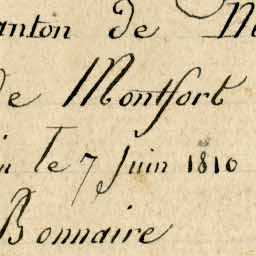 anton de M
de Montfort
n le 7 Juin 1810
Bonnaire